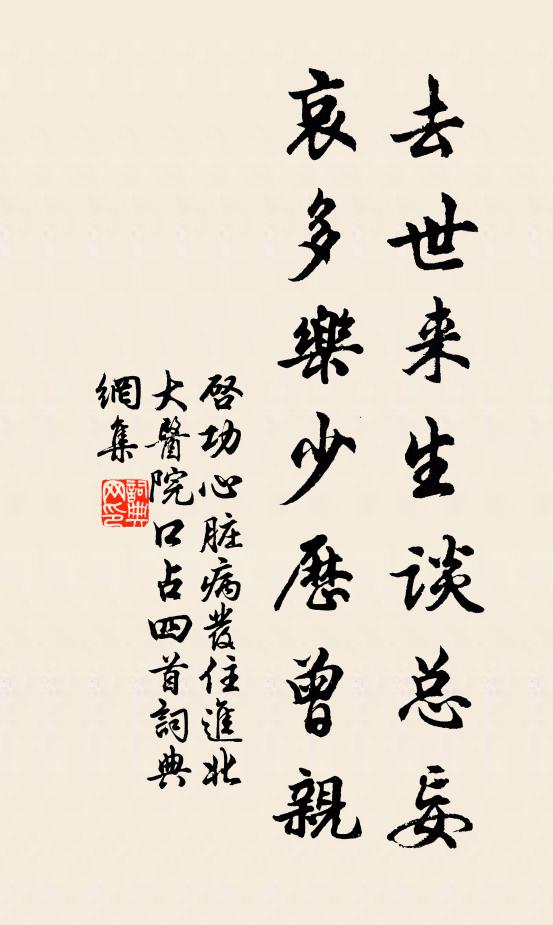 去世来生谈总妄
哀多樂少歷曾親
啓功心脏病發住進北
大醫院口占四首詞典
網集
詞典
网印